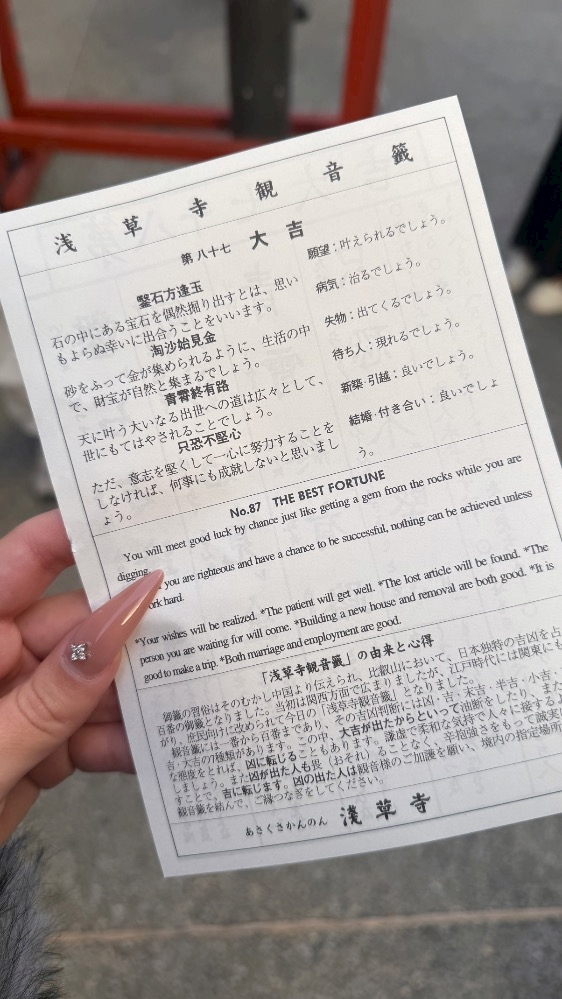 浅草寺観音籤
第八十七 大吉
鑿石方逢玉
石の中にある宝石を偶然掘り出すとは、思い
もよらぬ幸いに出合うことをいいます。
淘沙始見金
砂をふって金が集められるように、生活の中
で、財宝が自然と集まるでしょう。
青霄終有路
天に叶う大いなる出世への道は広々として、
世にもてはやされることでしょう。
只恐不堅心
ただ、意志を堅くして一心に努力することを
しなければ、何事にも成就しないと思いまし
ょう。
願望:叶えられるでしょう。
病気:治るでしょう。
失物:出てくるでしょう。
待ち人:現れるでしょう。
新築・引越:良いでしょう。
結婚・付き合い:良いでしょ
う。
No.87 THE BEST FORTUNE
You will meet good luck by chance just like getting a gem from the rocks while you are
digging.
you are righteous and have a chance to be successful, nothing can be achieved unless
ork hard.
*Your wishes will be realized. *The patient will get well. *The lost article will be found. *The
person you are waiting for will come. *Building a new house and removal are both good. *It is
good to make a trip. *Both marriage and employment are good.
「浅草寺観音籤」の由来と心得
御籤の習俗はそのむかし中国より伝えられ、比叡山において、日本独特の吉凶を占
百番の御籤となりました。当初は関西方面で広まりましたが、江戸時代には関東にも
がり、庶民向けに改められて今日の「浅草寺観音籤」となりました。
観音籤には一番から百番まであり、その吉凶判断には凶・吉・末吉・半吉・小吉・
吉・大吉の7種類があります。この中、大吉が出たからといって油断をしたり、また
な態度をとれば、凶に転じることもあります。謙虚で柔和な気持で人々に接するよ
しましょう。また凶が出た人も畏(おそれ)ることなく、辛抱強さをもって誠実
すことで、吉に転じます。凶の出た人は観音様のご加護を願い、境内の指定場所
観音籤を結んで、ご縁つなぎをしてください。
あさくさかんのん 浅草寺